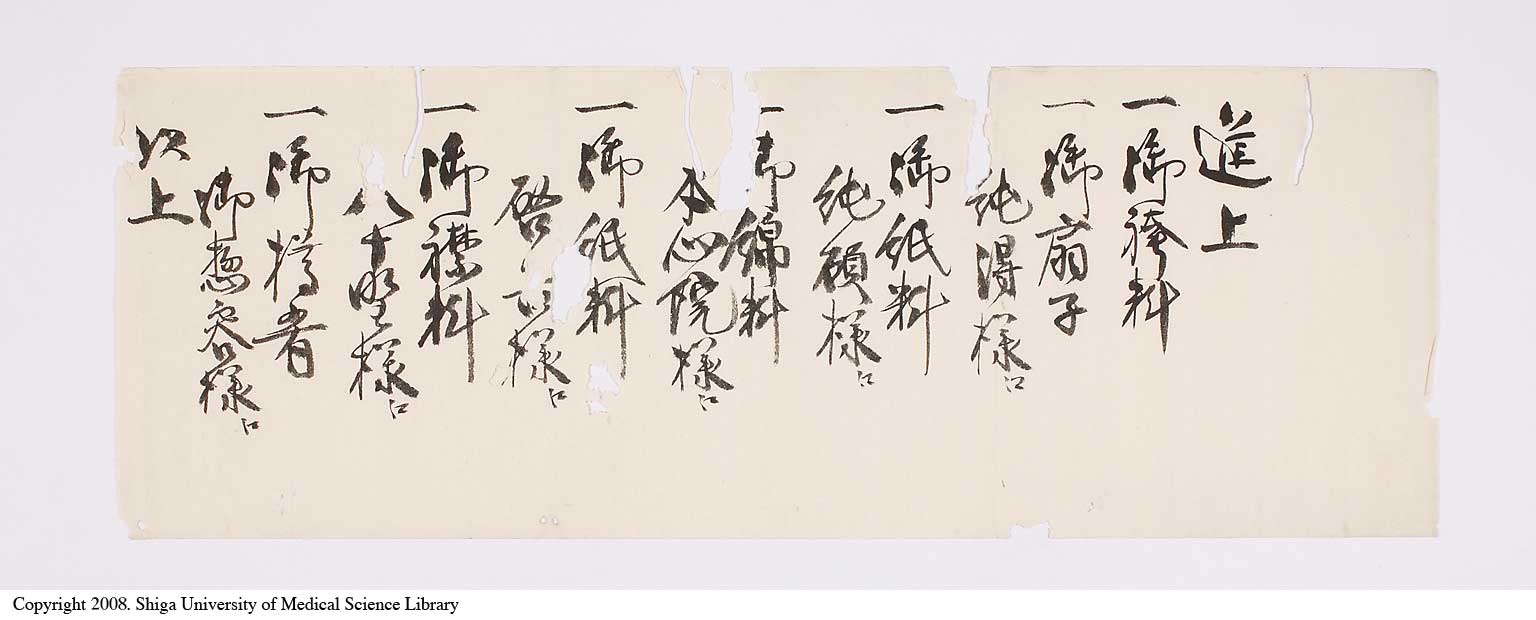 進上
一 御袴料
一 御扇子
純得様江
一 御紙料
純碩様江
一 御綿料
本心院様江
一 御紙料
啓 様江
一 御襟料
八十 様江
一 御樽肴
御惣容様江
以上
Copyright 2008. Shiga University of Medical Science Library